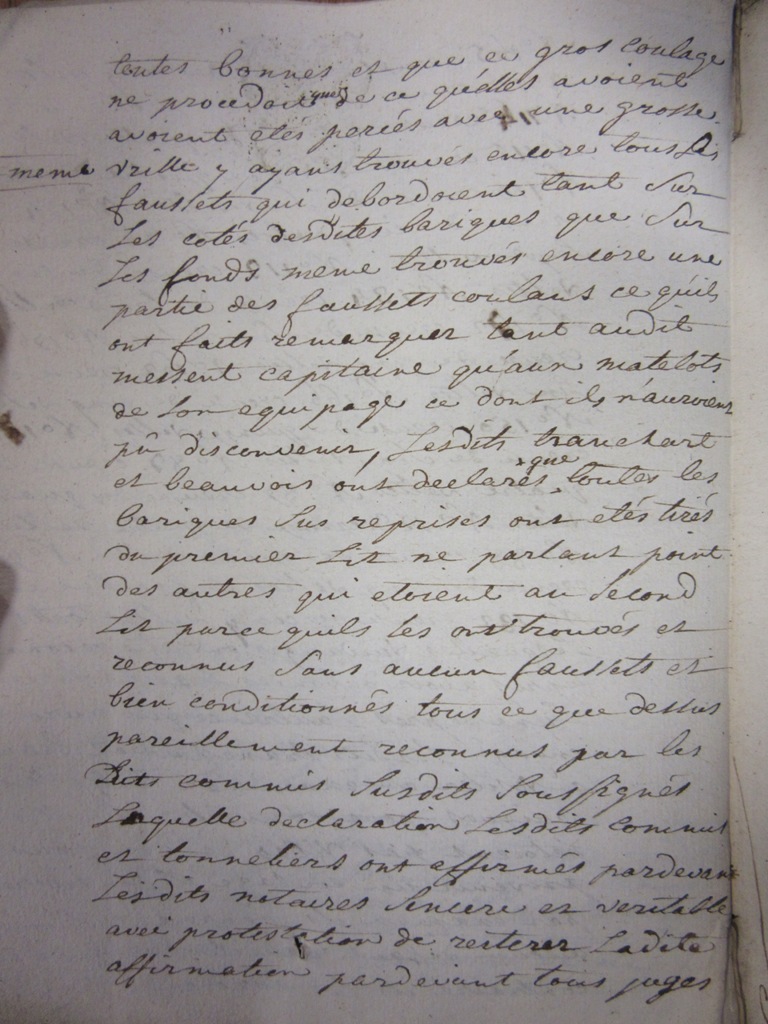 toutes bonnes et que ce gros coulage
ne procedoit que de ce quelles avoient
avoient etés percés avec une grosse
meme vrille y ayans trouvés encore tous les
faussets qui debordoient tant sur
Les cotés desdites bariques que sur
Les fonds meme trouvés encore une
partie des faussets coulans ce quils
ont faits remarquer tant audit
messent capitaine qu'aux matelots
de son equipage ce dont ils n'auroient
pû disconvenir, Lesdits tranchart
et beauvois ont declarés que toutes les
bariques sus reprises ont etés tirés
du premier Lit ne parlant point
des autres qui etoient au second
Lit parce quils les ont trouvés et
reconnus sans aucun faussets et
bien conditionnés tous ce que dessus
pareillement reconnus par les
Dits commis susdits soussignés
Laquelle declaration Lesdits commis
et tonneliers ont affirmés pardevant
Lesdits notaires sincere et veritable
avec protestation de reiterer Ladite
affirmation pardevant tous juges